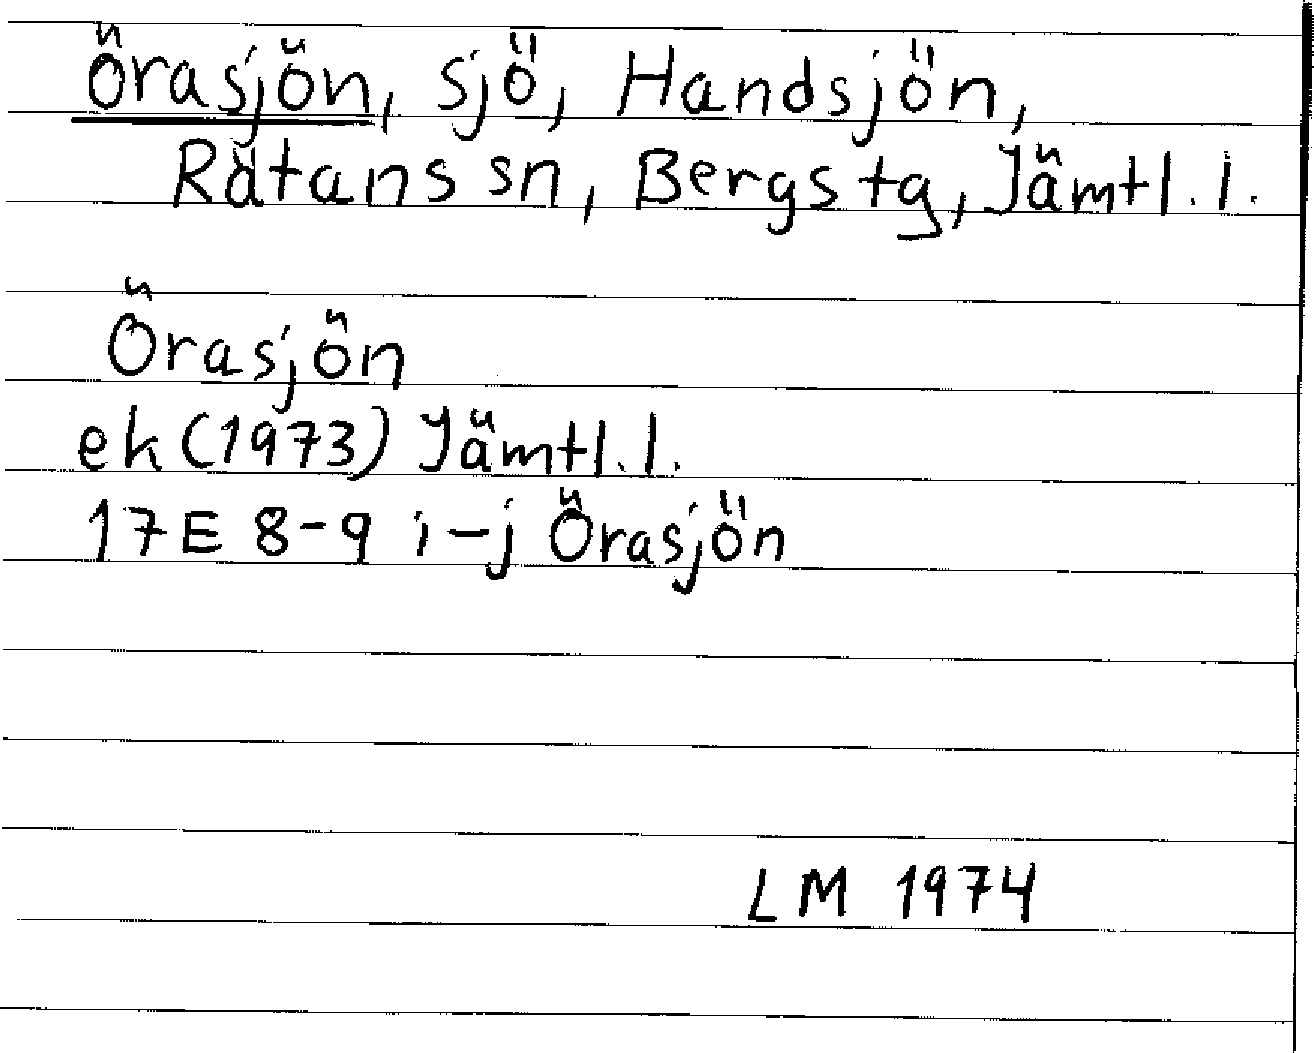 Örasjön, sjö, Handsjön,
Rätans sn, Bergs tg, Jämtl. l.
Örasjön
ek (1973) Jämtl. l.
17E 8-9 i-j Örasjön
LM 1974